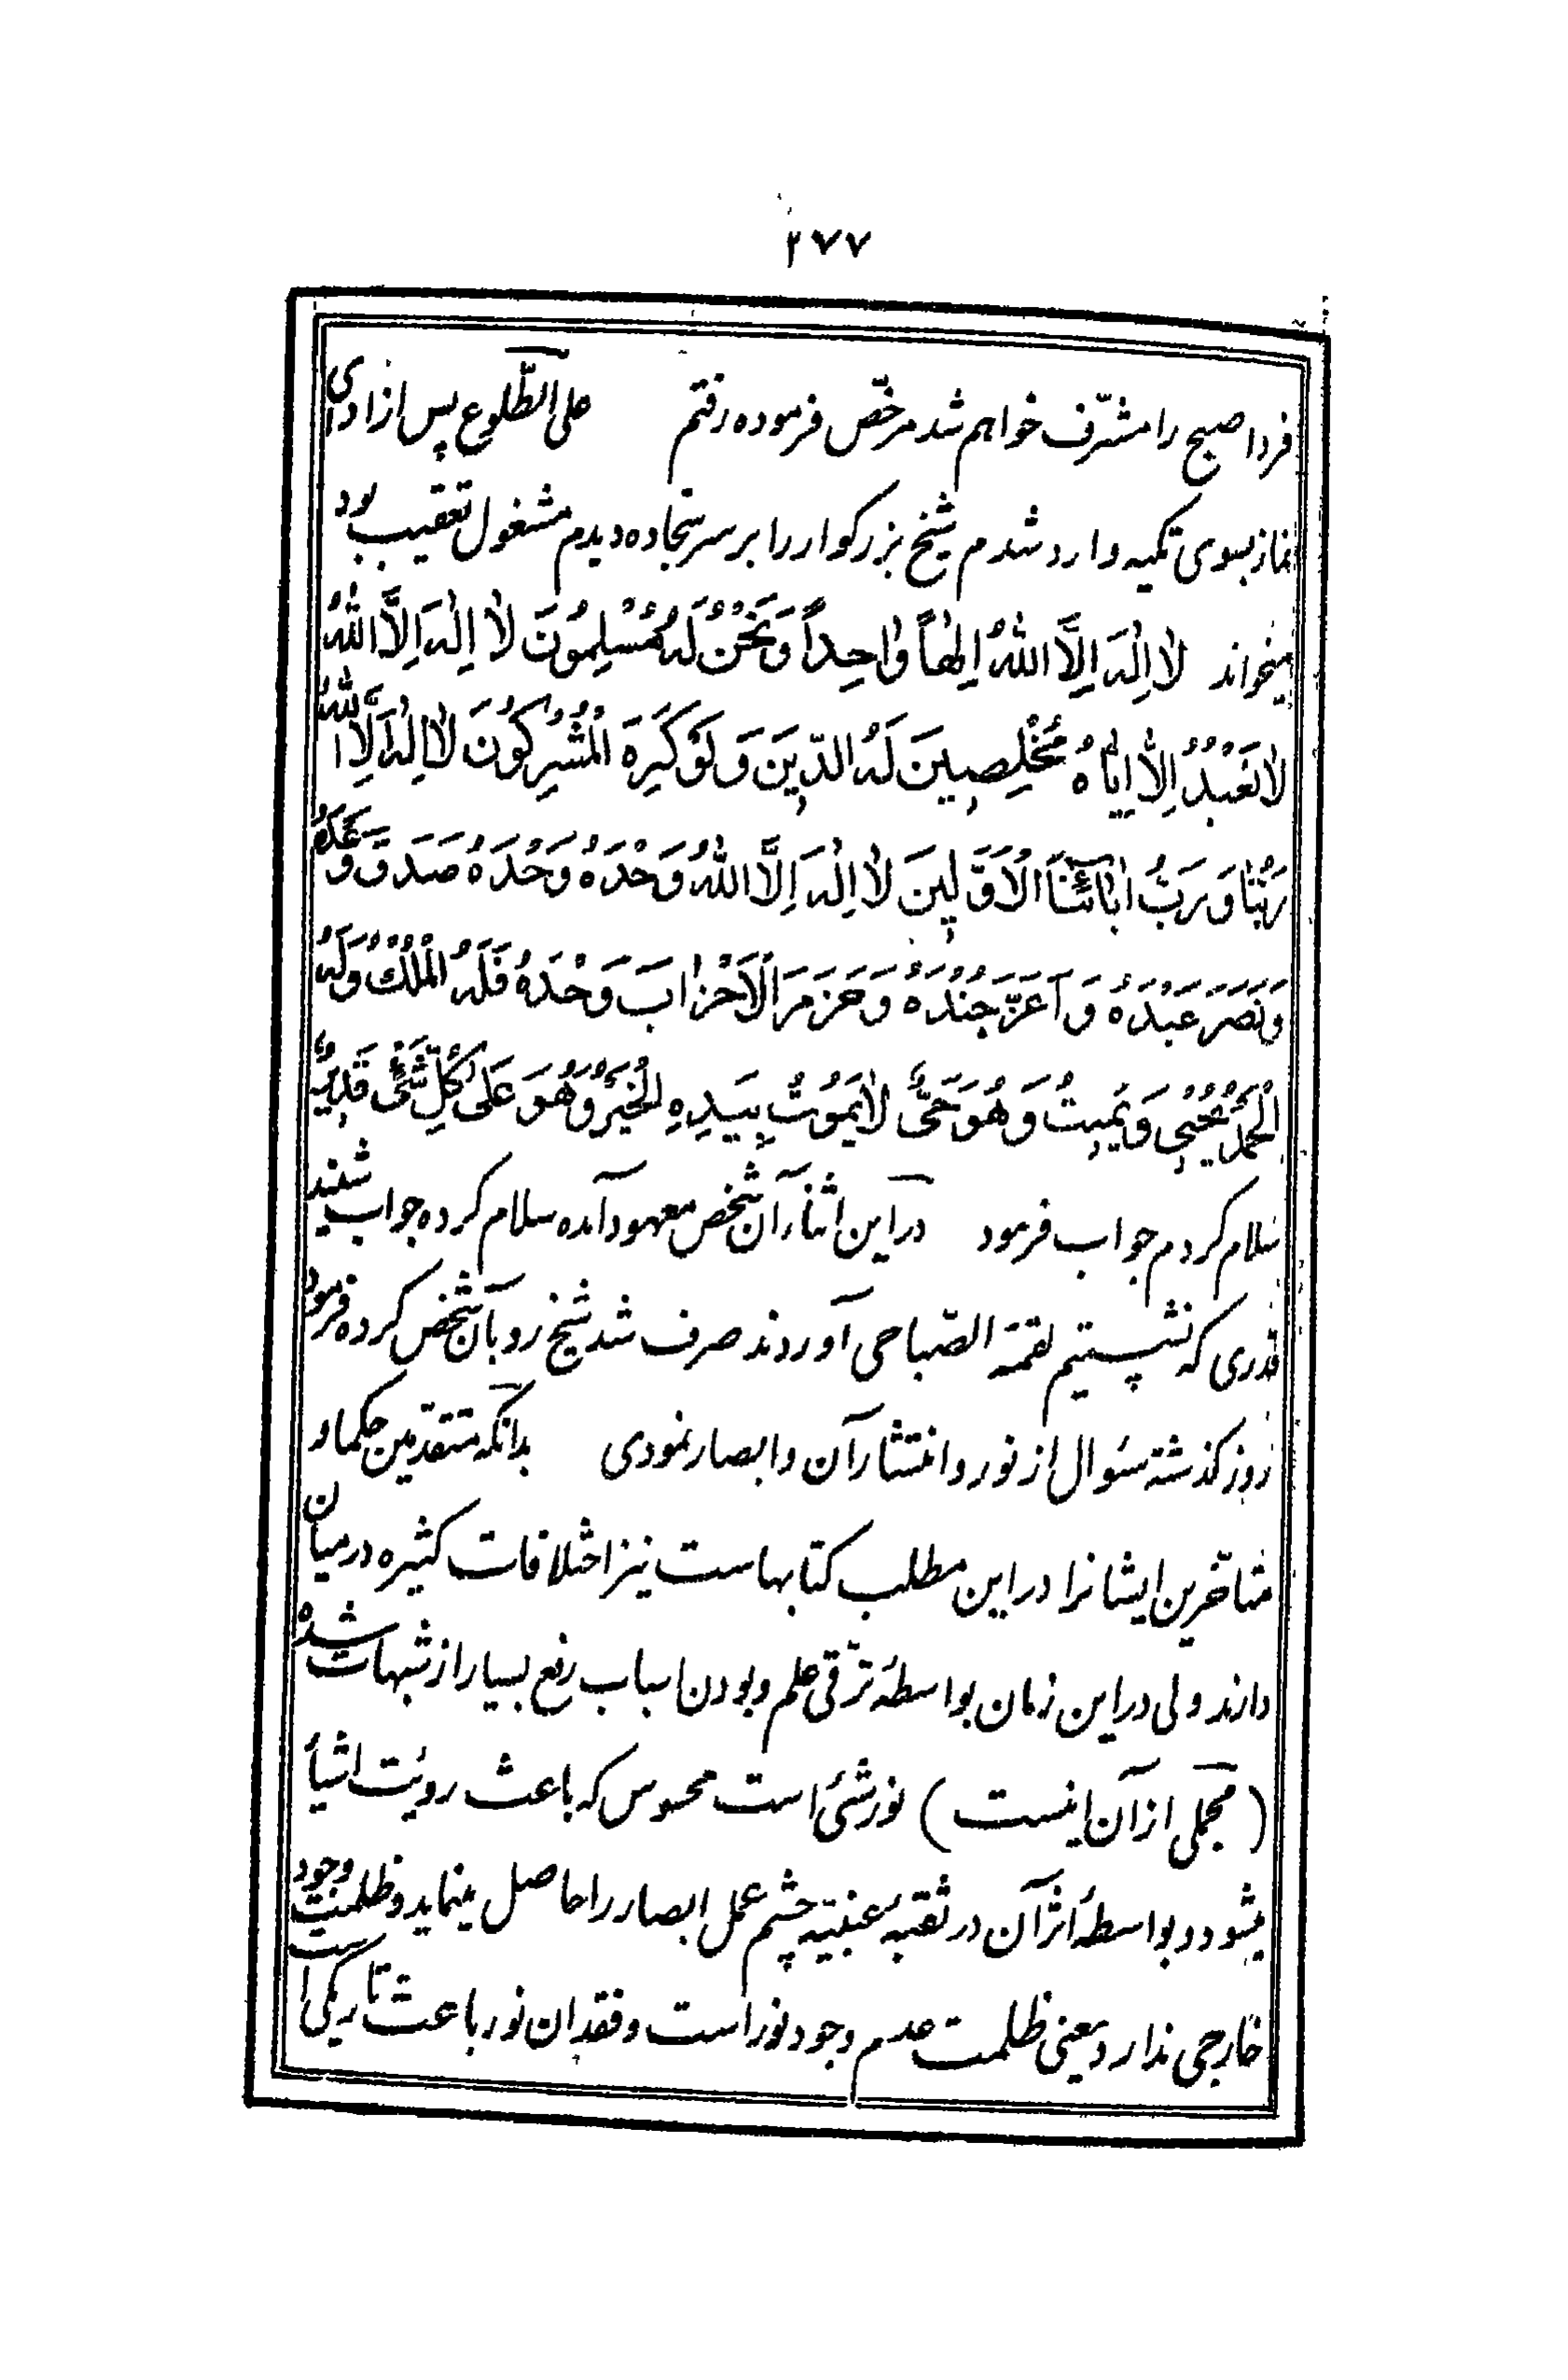 ۲۷۷
فردا صبح را مشرّف خواهم شد مرخّص فرموده رفتم على الطّلوع پس از ادای
نماز بسوی تکیه وارد شدم شیخ بزرکوار را بر سر سجّاده دیدم مشغول تعقیب بود
میخواند لاٰ اِلٰهَ اِلَّا اللهُ اِلٰهاً وٰاحِداً وَنَحْنُ لَهُ مُسْلِمُونَ لاٰ اِلٰهَ اِلَّا اللهُ
لاٰ نَعْبُدُ اِلاّٰ اِیّٰاهُ مُخْلِصِینَ لَهُ الدّینَ وَ لَوْ کَرِهَ الْمُشْرِکُونَ لاٰ اِلٰهَ اِلَّا اللهُ
رَبُّنٰا وَ رَبُّ اٰبٰائِنَا الْاَوَّلِینَ لاٰ اِلٰهَ اِلَّا اللهُ وَحْدَهُ وَحْدَهُ وَحْدَهُ صَدَقَ وَعْدَهُ
وَ نَصَرَ عَبْدَهُ وَ اَعَزَّ جُنْدَهُ وَ هَزَمَ الْاَحْزٰابَ وَحْدَهُ فَلَهُ الْمُلْکُ وَلَهُ
الْحَمْدُ یُحْیی وَ یُمیتُ وَ هُوَ حَیٌّ لاٰیَمُوتُ بِیَدِهِ الْخَیْرُ وَ هُوَ عَلیٰ کُلِّ شَیْءٍ قَدیرٌ
سلام کردم جواب فرمود در این اثناء آن شخص معهود آمده سلام کرده جواب شنید
قدری که نشستیم لقمة الصّباحی آوردند صرف شد شیخ رو بآن شخص کرده فرمود
روز کذشته سئوال از نور و انتشار آن و ابصار نمودی بدانکه متقدّمین حکما و
متأخّرین ایشانرا در این مطلب کتابهاست نیز اختلافات کثیره در میان
دارند ولی در این زمان بواسطهٔ ترّقی علم و بودن اسباب رفع بسیار از شبهات شده
(مجملی از آن اینست) نور شیٔ است محسوس که باعث رویٔت اشیأ
میشود و بواسطهٔ اثر آن در ثقبهٔ عنبیّه چشم عمل ابصار را حاصل مینماید و ظلمت وجود
خارجی ندارد یعنی ظلمت عدم وجود نور است و فقدان نور باعث تاریکی است